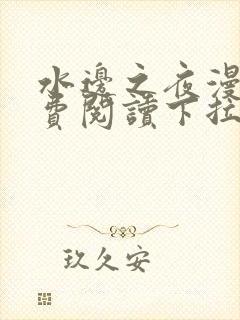 水邊之夜漫
費閱讀下拉
玖久安